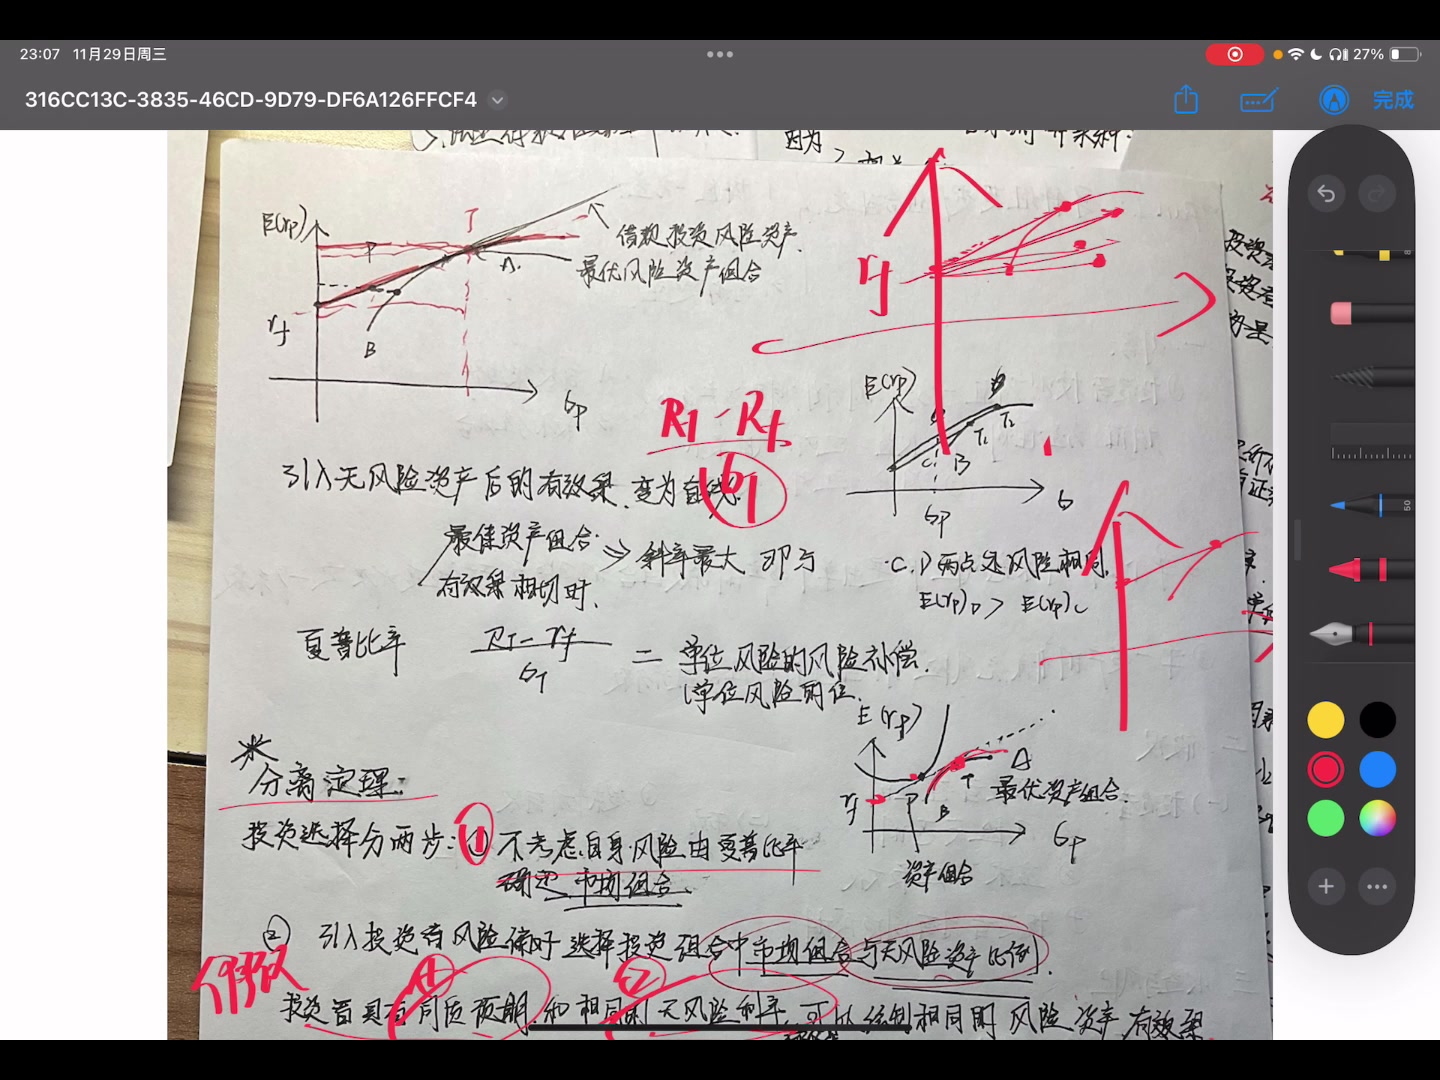 23:07 11月29日周三
27%
316CC13C-3835-46CD-9D79-DF6A126FFCF4
完成
因为
E(rp)
T
P
借款投资风险资产
最优风险资产组合
A
rf
B
σp
rf
E(rp)
T1
T2
C
B
σp
σ
RT - Rf
σT
引入无风险资产后的有效界,变为直线.
最佳资产组合
有效界相切时.
⇒ 斜率最大 即与
·C.D两点处风险相同.
E(rp)D > E(rp)C
夏普比率
RT - rf
σT
= 单位风险的风险补偿.
E(rp)
rf
P
B
T
A
最优资产组合.
σp
资产组合
分离定理:
投资选择分两步: ① 不考虑自身风险由夏普比率
确定市场组合.
② 引入投资者风险偏好 选择投资组合中市场组合与无风险资产比例.
假设
① ②
投资者具有同质预期,和相同的无风险利率,可以绘制相同的风险资产有效界